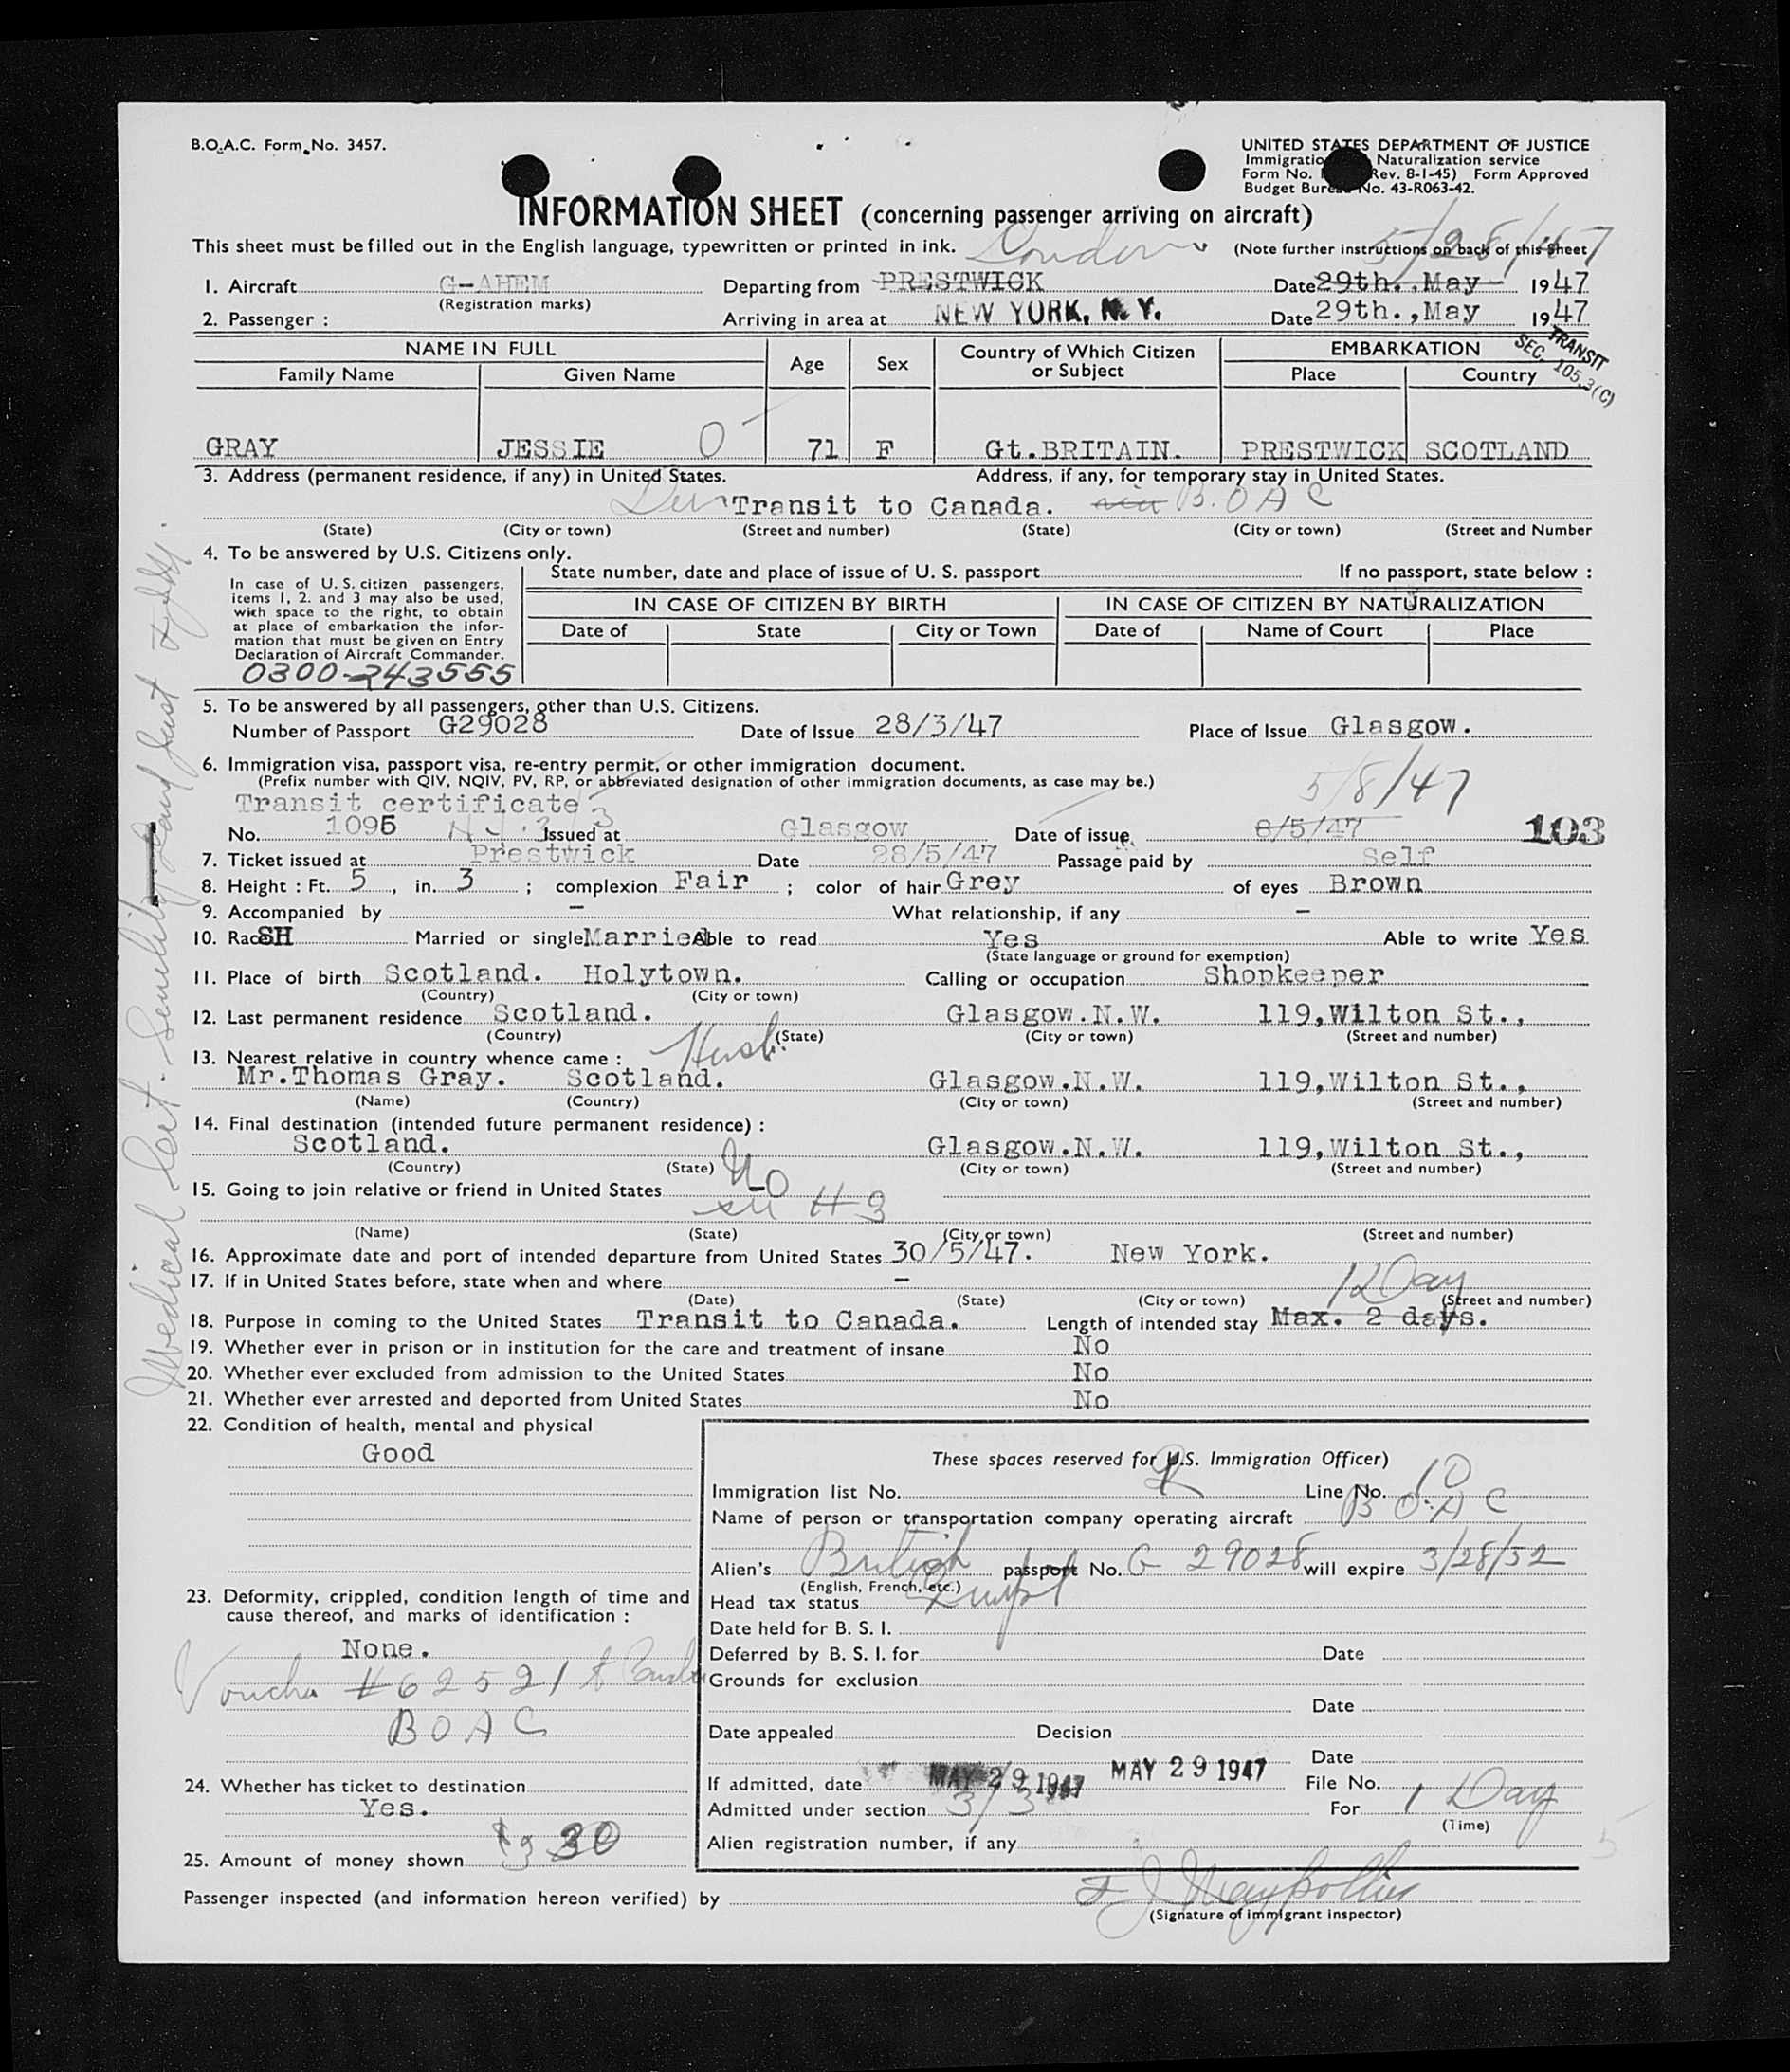 B.O.A.C. Form No. 3457.
UNITED STATES DEPARTMENT OF JUSTICE
Immigration Naturalization service
Form No. Rev. 8-1-45) Form Approved
Budget Bureau No. 43-R063-42.
INFORMATION SHEET (concerning passenger arriving on aircraft)
5/28/47
This sheet must be filled out in the English language, typewritten or printed in ink. London (Note further instructions on back of this sheet
1. Aircraft G-AHEM Departing from PRESTWICK Date 29th., May 1947
(Registration marks)
2. Passenger : Arriving in area at NEW YORK, N.Y. Date 29th., May 1947
TRANSIT
SEC. 105.3(C)
NAME IN FULL Age Sex Country of Which Citizen or Subject EMBARKATION
Family Name Given Name Place Country
GRAY JESSIE O 71 F Gt.BRITAIN. PRESTWICK SCOTLAND
3. Address (permanent residence, if any) in United States. Address, if any, for temporary stay in United States.
Transit to Canada. via B.O A C
(State) (City or town) (Street and number) (State) (City or town) (Street and Number
4. To be answered by U.S. Citizens only.
State number, date and place of issue of U. S. passport If no passport, state below :
In case of U. S. citizen passengers,
items 1, 2. and 3 may also be used,
with space to the right, to obtain
at place of embarkation the infor-
mation that must be given on Entry
Declaration of Aircraft Commander.
IN CASE OF CITIZEN BY BIRTH IN CASE OF CITIZEN BY NATURALIZATION
Date of State City or Town Date of Name of Court Place
0300-243555
5. To be answered by all passengers, other than U.S. Citizens.
Number of Passport G29028 Date of Issue 28/3/47 Place of Issue Glasgow.
6. Immigration visa, passport visa, re-entry permit, or other immigration document.
(Prefix number with QIV, NQIV, PV, RP, or abbreviated designation of other immigration documents, as case may be.)
Transit certificate 5/8/47
No. 1095 Issued at Glasgow Date of issue 8/5/47 103
7. Ticket issued at Prestwick Date 28/5/47 Passage paid by Self
8. Height : Ft. 5 , in. 3 ; complexion Fair ; color of hair Grey of eyes Brown
9. Accompanied by - What relationship, if any -
10. Race SH Married or single Married Able to read Yes Able to write Yes
(State language or ground for exemption)
11. Place of birth Scotland. Holytown. Calling or occupation Shopkeeper
(Country) (City or town)
12. Last permanent residence Scotland. Glasgow.N.W. 119,Wilton St.,
(Country) (State) (City or town) (Street and number)
13. Nearest relative in country whence came : Husb.
Mr.Thomas Gray. Scotland. Glasgow.N.W. 119,Wilton St.,
(Name) (Country) (City or town) (Street and number)
14. Final destination (intended future permanent residence) :
Scotland. Glasgow.N.W. 119,Wilton St.,
(Country) (State) (City or town) (Street and number)
15. Going to join relative or friend in United States No
#3
(Name) (State) (City or town) (Street and number)
16. Approximate date and port of intended departure from United States 30/5/47. New York.
17. If in United States before, state when and where -
(Date) (State) (City or town) (Street and number)
1 Day
18. Purpose in coming to the United States Transit to Canada. Length of intended stay Max. 2 days.
19. Whether ever in prison or in institution for the care and treatment of insane No
20. Whether ever excluded from admission to the United States No
21. Whether ever arrested and deported from United States No
22. Condition of health, mental and physical
Good
23. Deformity, crippled, condition length of time and
cause thereof, and marks of identification :
None.
Voucher #62521
B O A C
24. Whether has ticket to destination
Yes.
25. Amount of money shown 30
These spaces reserved for U.S. Immigration Officer)
Immigration list No. Line No. 10
Name of person or transportation company operating aircraft B O A C
Alien's British passport No. G 29028 will expire 3/28/52
(English, French, etc.)
Head tax status Exempt
Date held for B. S. I.
Deferred by B. S. I. for Date
Grounds for exclusion
Date
Date appealed Decision
Date
If admitted, date MAY 29 1947 MAY 29 1947 File No.
Admitted under section 3/3 For 1 Day
(Time)
Alien registration number, if any
Passenger inspected (and information hereon verified) by
(Signature of immigrant inspector)
Medical Cert. Senility